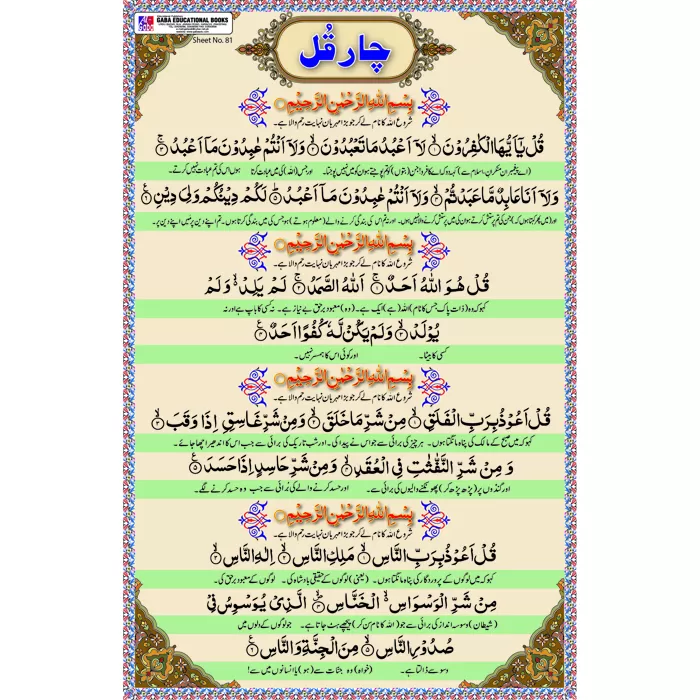 GABA EDUCATIONAL BOOKS
Sheet No. 81
چار قُل
بِسْمِ اللهِ الرَّحْمٰنِ الرَّحِيْمِ
شروع اللہ کا نام لے کر جو بڑا مہربان نہایت رحم والا ہے۔
قُلْ يٰٓاَيُّهَا الْكٰفِرُوْنَ ۙ۱ لَاۤ اَعْبُدُ مَا تَعْبُدُوْنَ ۙ۲ وَلَاۤ اَنْتُمْ عٰبِدُوْنَ مَاۤ اَعْبُدُ ۚ۳
(اے پیغمبر ان منکرانِ اسلام سے) کہہ دو کہ اے کافرو! جن (بتوں) کو تم پوجتے ہو ان کو میں نہیں پوجتا۔ اور جس (اللہ) کی میں عبادت کرتا ہوں اس کی تم عبادت نہیں کرتے۔
وَلَاۤ اَنَا عَابِدٌ مَّا عَبَدْتُّمْ ۙ۴ وَلَاۤ اَنْتُمْ عٰبِدُوْنَ مَاۤ اَعْبُدُ ۵ لَكُمْ دِيْنُكُمْ وَلِيَ دِيْنِ ۶
اور (میں پھر کہتا ہوں کہ) جن کی تم پرستش کرتے ہو ان کی میں پرستش کرنے والا نہیں ہوں۔ اور نہ تم اس کی بندگی کرنے والے (معلوم ہوتے) ہو جس کی میں بندگی کرتا ہوں۔ تم اپنے دین پر میں اپنے دین پر۔
بِسْمِ اللهِ الرَّحْمٰنِ الرَّحِيْمِ
شروع اللہ کا نام لے کر جو بڑا مہربان نہایت رحم والا ہے۔
قُلْ هُوَ اللهُ اَحَدٌ ۚ۱ اَللهُ الصَّمَدُ ۚ۲ لَمْ يَلِدْ ۙ۬ وَلَمْ
کہو کہ وہ (ذات پاک جس کا نام) اللہ (ہے) ایک ہے۔ (وہ) معبود برحق بے نیاز ہے۔ نہ کسی کا باپ ہے اور نہ
يُوْلَدْ ۙ۳ وَلَمْ يَكُنْ لَّهٗ كُفُوًا اَحَدٌ ۴
کسی کا بیٹا۔ اور کوئی اس کا ہمسر نہیں۔
بِسْمِ اللهِ الرَّحْمٰنِ الرَّحِيْمِ
شروع اللہ کا نام لے کر جو بڑا مہربان نہایت رحم والا ہے۔
قُلْ اَعُوْذُ بِرَبِّ الْفَلَقِ ۙ۱ مِنْ شَرِّ مَا خَلَقَ ۙ۲ وَمِنْ شَرِّ غَاسِقٍ اِذَا وَقَبَ ۙ۳
کہو کہ میں صبح کے مالک کی پناہ مانگتا ہوں۔ ہر چیز کی برائی سے جو اس نے پیدا کی۔ اور شب تاریک کی برائی سے جب اس کا اندھیرا چھا جائے۔
وَ مِنْ شَرِّ النَّفّٰثٰتِ فِي الْعُقَدِ ۙ۴ وَ مِنْ شَرِّ حَاسِدٍ اِذَا حَسَدَ ۵
اور گنڈوں پر (پڑھ پڑھ کر) پھونکنے والیوں کی برائی سے۔ اور حسد کرنے والے کی بُرائی سے جب وہ حسد کرنے لگے۔
بِسْمِ اللهِ الرَّحْمٰنِ الرَّحِيْمِ
شروع اللہ کا نام لے کر جو بڑا مہربان نہایت رحم والا ہے۔
قُلْ اَعُوْذُ بِرَبِّ النَّاسِ ۙ۱ مَلِكِ النَّاسِ ۙ۲ اِلٰهِ النَّاسِ ۙ۳
کہو کہ میں لوگوں کے پروردگار کی پناہ مانگتا ہوں۔ (یعنی) لوگوں کے حقیقی بادشاہ کی۔ لوگوں کے معبود برحق کی۔
مِنْ شَرِّ الْوَسْوَاسِ ۙ۬ الْخَنَّاسِ ۙ۴ الَّذِيْ يُوَسْوِسُ فِيْ
(شیطان) وسوسہ انداز کی برائی سے جو (اللہ کا نام سن کر) پیچھے ہٹ جاتا ہے۔ جو لوگوں کے دلوں میں
صُدُوْرِ النَّاسِ ۙ۵ مِنَ الْجِنَّةِ وَالنَّاسِ ۶
وسوسے ڈالتا ہے۔ (خواہ) وہ جنات سے (ہو) یا انسانوں میں سے!